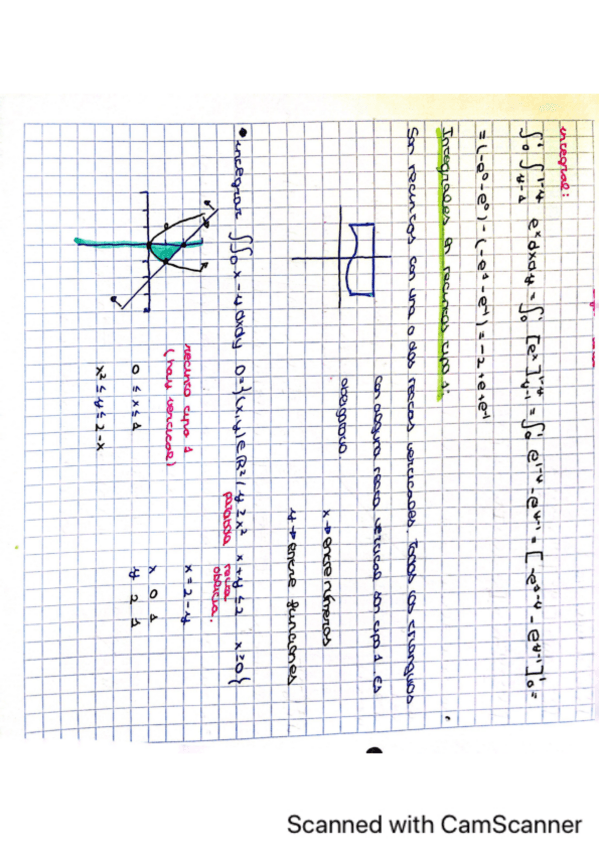 integral:
∫₀¹ ∫_{y-1}^{1-y} eˣ dxdy = ∫₀¹ [eˣ]_{y-1}^{1-y} = ∫₀¹ e^{1-y} - e^{y-1} = [-e^{1-y} - e^{y-1}]₀¹ =
= (-e⁰-e⁰) - (-e¹-e⁻¹) = -2+e+e⁻¹
Integrales en recintos tipo 1:
Son recintos con una o dos rectas verticales. Todos los triángulos
con alguna recta vertical son tipo 1. es
obligatorio.
x → entre números
y → entre funciones
• integrar ∬_D x-y dxdy D={(x,y)∈ℝ² / y≥x² x+y≤2 x≥0}
parábola recta oblicua.
recinto tipo 1
(hay vertical)
0 ≤ x ≤ 1
x² ≤ y ≤ 2-x
x = 2-y
x 0 1
y 2 1
Scanned with CamScanner